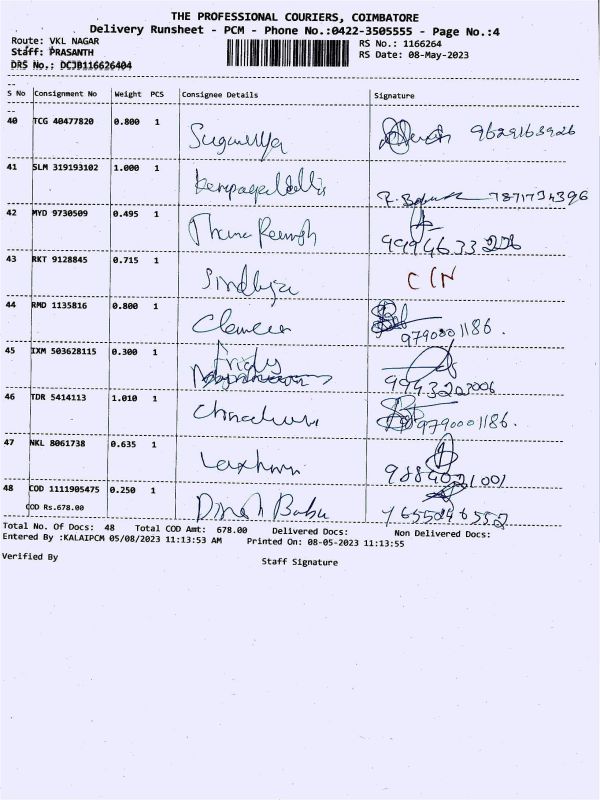 THE PROFESSIONAL COURIERS, COIMBATORE
Delivery Runsheet - PCM - Phone No.:0422-3505555 - Page No.:4
Route: VKL NAGAR
RS No.: 1166264
Staff: PRASANTH
RS Date: 08-May-2023
DRS No.: DCJB116626404
S No Consignment No Weight PCS Consignee Details Signature
40 TCG 40477820 0.800 1 9629163926
41 SLM 319193102 1.000 1
42 MYD 9730509 0.495 1
43 RKT 9128845 0.715 1 Sindhuja
44 RMD 1135816 0.800 1 9790001186.
45 IXM 503628115 0.300 1 9943202006
46 TDR 5414113 1.010 1 9790001186.
47 NKL 8061738 0.635 1
48 COD 1111905475 0.250 1 Dinesh Babu
COD Rs.678.00
Total No. Of Docs: 48 Total COD Amt: 678.00 Delivered Docs: Non Delivered Docs:
Entered By :KALAIPCM 05/08/2023 11:13:53 AM Printed On: 08-05-2023 11:13:55
Verified By
Staff Signature